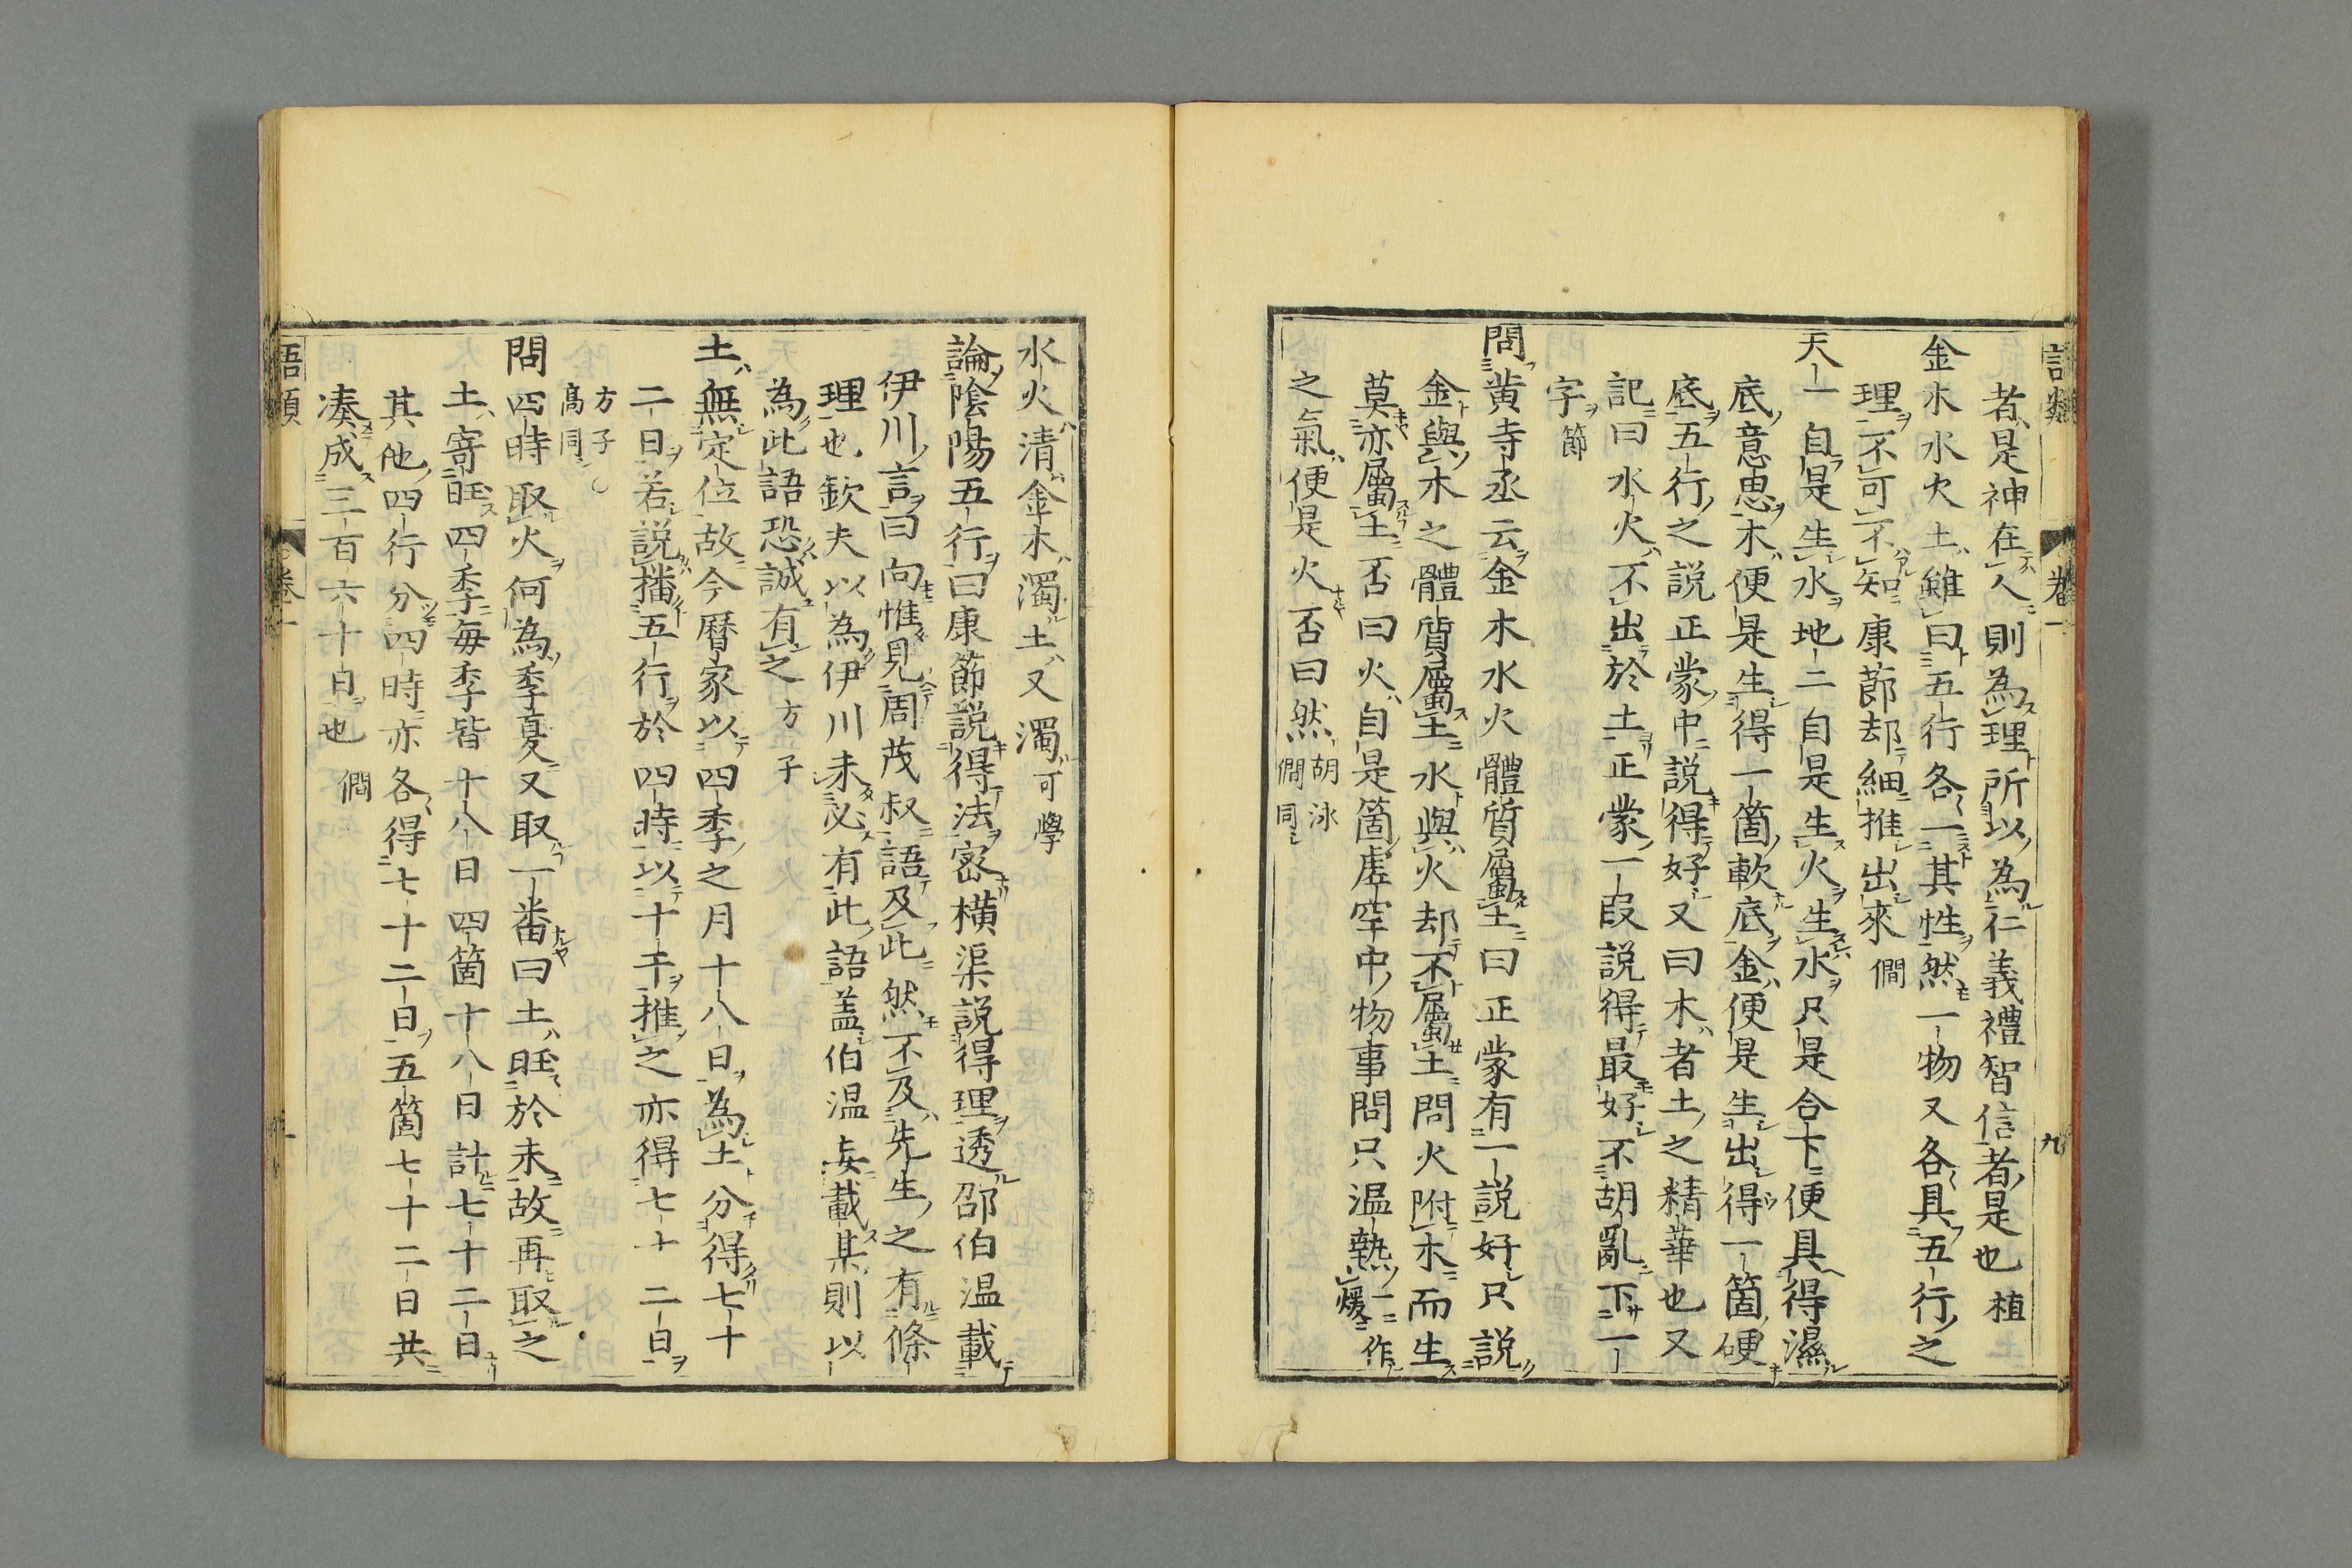 語類
卷一
九
者是神在人則為理所以為仁義禮智信者是也 植
金木水火土雖曰五行各一其性然一物又各具五行之
理不可不知康節却細推出來 僩
天一自是生水地二自是生火生水只是合下便具得濕
底意思木便是生得一箇軟底金便是生出得一箇硬
底五行之說正蒙中說得好又曰木者土之精華也又
記曰水火不出於土正蒙一段說得最好不胡亂下一
字 節
問黃寺丞云金木水火體質屬土曰正蒙有一說好只說
金與木之體質屬土水與火却不屬土問火附木而生
莫亦屬土否曰火自是箇虛空中物事問只温熱一作煖
之氣便是火否曰然 胡泳 僩同
水火清金木濁土又濁 可學
論陰陽五行曰康節說得法密橫渠說得理透邵伯温載
伊川言曰向惟見周茂叔語及此然不及先生之有條
理也欽夫以為伊川未必有此語蓋伯温妄載某則以
為此語恐誠有之 方子
土無定位故今曆家以四季之月十八日為土分得七十
二日若說播五行於四時以十干推之亦得七十二日
方子 高同
問四時取火何為季夏又取一番曰土旺於未故再取之
土寄旺四季每季皆十八日四箇十八日計七十二日
其他四行分四時亦各得七十二日五箇七十二日共
湊成三百六十日也 僩
語類
卷一